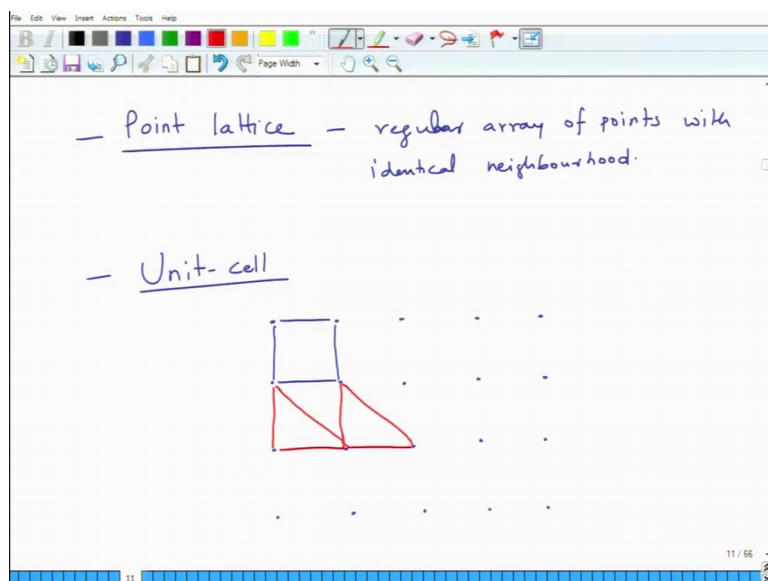 File Edit View Insert Actions Tools Help
B I
Page Width
— Point lattice — regular array of points with
identical neighbourhood.
— Unit-cell
11 / 66
11